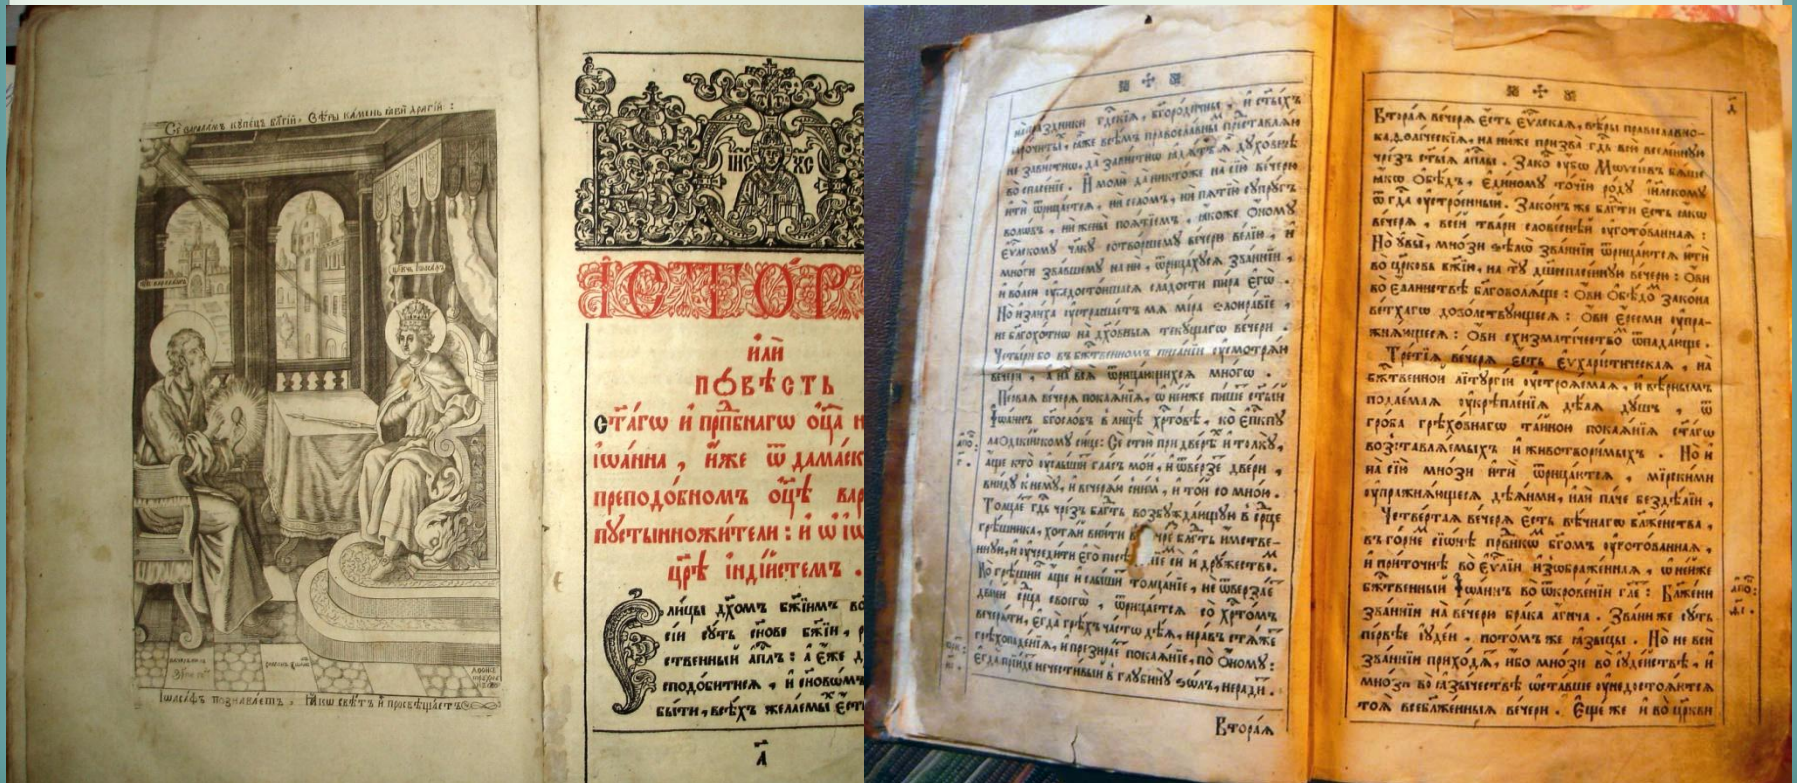 Се варлаамъ купецъ благiй. Вѣры камень драгiй :
Iѡасафъ познаваетъ , Якѡ свѣтъ и просвѣщаетъ
ІИС ХС
ІСТОР
или́
по́вѣсть
ст҃а́гѡ и҆ прпⷣбнагѡ ѻ҆ц҃а̀ н
і҆ѡа́нна , и҆́же ѿ дама́ск
преподо́бномъ ѻ҆ц҃ѣ̀ вар
пꙋстынножи́тели : и҆ ѡ҆ і҆ѡ
цр҃ѣ̀ і҆нді́йстемъ .
лицы дх҃омъ бж҃іимъ во
сі́и сꙋ́ть сн҃ове бж҃іи ,
ственный а҆пⷭ҇лъ : а҆ є҆́же д
сподо́битисѧ , и҆ сновѡмъ
бы́ти , всѣ́хъ жела́емы є҆сть
а҃
не зави́стнѡ , да зави́стнѡ
во спасе́нїе . И҆ молю̀ да никто́же на сїю̀ ве́черю
и҆тѝ ѿрица́етсѧ , ни село́мъ , ни пѧтїю̀ сꙋпрꙋ́гъ
воло́въ , ни жены̀ поѧ́тїемъ , ꙗ҆́коже ѻ҆́номꙋ
є҆ѵⷢ҇лскомꙋ чл҃кꙋ сотво́ршемꙋ ве́черю ве́лїю , и҆
мно́ги зва́вшемꙋ на ню̀ , ѿрица́хꙋсѧ зва́ннїи ,
сла́дости пи́ра є҆гѡ̀ .
Но и҆зли́ха ᲂу҆страша́етъ мѧ̀ мі́ра
не бл҃гохо́тнѡ на дх҃о́вныѧ текꙋ́щагѡ ве́чери .
Четы́ри бо въ бж҃е́ственномъ писа́нїи ᲂу҆смотрѧ́ю
ве́чери , а҆ на всѧ̑ ѿрица́ющихсѧ мно́гѡ .
Пе́рваѧ ве́черѧ покаѧ́нїѧ , ѡ҆ не́йже пи́ше ст҃ы́й
І҆ѡа́ннъ бг҃осло́въ в лицѐ хрⷭ҇то́вѣ , ко є҆пⷭ҇кпꙋ
лаѻдїкі́йскомꙋ си́це : Се стою̀ при две́рехъ и҆ толкꙋ̀ ,
а҆́ще кто̀ ᲂу҆слы́шит гла́съ мо́й , и҆ ѿве́рзе две́ри ,
вни́дꙋ к немꙋ̀ , и҆ вечерѧ́ю с ни́м , и҆ то́й со мно́ю .
Толца́е гдⷭ҇ь чре́зъ бл҃гть возбꙋжда́ющꙋю в се́рце
грѣ́шника , хотѧ́й вни́ти
и҆ дрꙋ́жество .
Но грѣ́шнїй а҆́ще и҆ слы́ши толца́нїе , не ѿверза́е
две́ри се́рца своегѡ̀ , ѿрица́етсѧ со хрⷭ҇то́мъ
вечерѧ́ти , є҆гда̀ грѣ́хъ ча́стѡ дѣ́ѧ , нра́въ стѧ́же
грѣхопаде́нїѧ , и҆ презира́е покаѧ́нїе , по ѻ҆́номꙋ :
Є҆гда̀ прїи́де нечести́вый в глꙋбинꙋ̀ ѕѡ́лъ , неради́ .
Втора́ѧ
Втора́ѧ ве́черѧ є҆́сть є҆ѵⷢ҇лскаѧ , вѣ́ры правосла́вно-
каѳоли́ческїѧ , на ню́же призва̀ гдⷭ҇ь всю̀ вселе́ннꙋю
чре́зъ ст҃ы́ѧ а҆пⷭ҇лы . Зако́ ᲂу҆́бѡ Мѡѷсе́овъ бѧ́ше
ꙗ҆́кѡ ѻ҆бѣ́дъ , є҆ди́номꙋ то́чїю ро́дꙋ і҆и҃лскомꙋ
ѿ гдⷭ҇а ᲂу҆стро́енный . Зако́нъ же бл҃гти є҆́сть ꙗ҆́кѡ
ве́черѧ , все́й тва́ри слове́снѣй ᲂу҆гото́ваннаѧ :
Но ᲂу҆вы̀ , мно́зи ѕѣлѡ̀ зва́ннїи ѿрица́ютсѧ и҆тѝ
во цр҃ковь бж҃їю , на тꙋ̀ дш҃еспасе́ннꙋю ве́черю : Ѻ҆́ви
во є҆́ллинствѣ благоволѧ́ще : Ѻ҆́ви ѻ҆бѣ́до зако́на
ве́тхагѡ дово́лствꙋющесѧ : Ѻ҆́ви є҆ресми ᲂу҆пра-
жнѧ́ющесѧ : Ѻ҆́ви схизмати́чество ѿпа́дающе .
Тре́тїѧ ве́черѧ є҆́сть є҆ѵхаристи́ческаѧ , на
бж҃е́ственной літꙋргі́и ᲂу҆строѧ́емаѧ , и҆ вѣ́рнымъ
подае́маѧ ᲂу҆крѣпле́нїѧ дѣ́лѧ дꙋ́шъ , ѿ
гро́ба грѣхо́внагѡ та́йною покаѧ́нїѧ ст҃а́гѡ
возставлѧ́емыхъ и҆ животвори́мыхъ . Но и҆
на сїю̀ мно́зи и҆тѝ ѿрица́ютсѧ , мірски́ми
ᲂу҆пражнѧ́ющесѧ дѣѧ́ньми , и҆лѝ па́че бездѣ́лїи ,
Четве́ртаѧ ве́черѧ є҆́сть вѣ́чнагѡ бл҃же́нства ,
въ го́рнѣ сїѡ́нѣ пра́вникѡ бг҃омъ ᲂу҆гото́ваннаѧ ,
и҆ при́точнѣ во є҆ѵⷢ҇лїи и҆зѡбраже́ннаѧ , ѡ҆ не́йже
бж҃е́ственный І҆ѡа́ннъ во ѿкрове́нїи гл҃е : Бл҃же́ни
зва́ннїи на ве́черю бра́ка а҆́гнча . Зва́ни же сꙋ́ть
пе́рвѣе і҆ꙋде́и , пото́мъ же ꙗ҆зы́цы . Но не всѝ
зва́ннїи прихо́дѧ , и҆́бо мно́зи во і҆ꙋде́йствѣ , и҆
мно́зи во ꙗ҆зы́чествѣ ѡ҆ста́вше ᲂу҆недосто́ѧтсѧ
тоѧ̀ всебл҃же́нныѧ ве́чери . Є҆ще́ же и҆ во цр҃кви